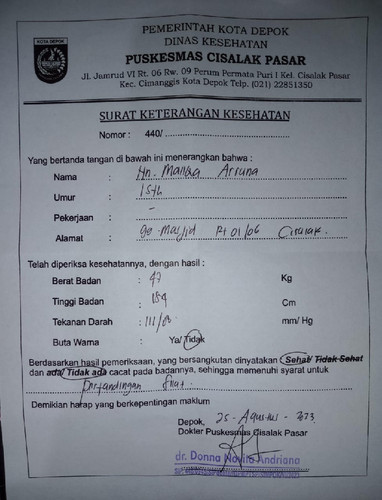 KOTA DEPOK
PEMERINTAH KOTA DEPOK
DINAS KESEHATAN
PUSKESMAS CISALAK PASAR
Jl. Jamrud VI Rt. 06 Rw. 09 Perum Permata Puri I Kel. Cisalak Pasar
Kec. Cimanggis Kota Depok Telp. (021) 22851350
SURAT KETERANGAN KESEHATAN
Nomor : 440/
Yang bertanda tangan di bawah ini menerangkan bahwa :
Nama :
Umur : 15th
Pekerjaan : -
Alamat : Rt 01/06 Cisalak.
Telah diperiksa kesehatannya, dengan hasil :
Berat Badan : 47 Kg
Tinggi Badan : 154 Cm
Tekanan Darah : mm/ Hg
Buta Warna : Ya/ Tidak
Berdasarkan hasil pemeriksaan, yang bersangkutan dinyatakan Sehat/ Tidak Sehat
dan ada/ Tidak ada cacat pada badannya, sehingga memenuhi syarat untuk
Pertandingan Silat
Demikian harap yang berkepentingan maklum
Depok, 25 - Agustus -
Dokter Puskesmas Cisalak Pasar
dr. Donna Andriana